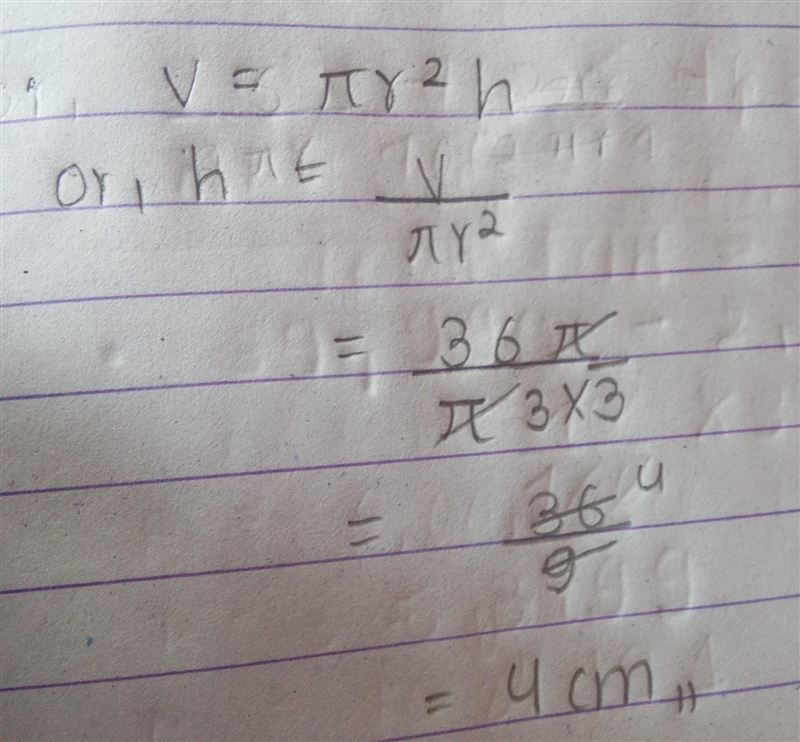 V = πr² h
or, h = V / πr²
= 36 π / π 3×3
= 36 4 / 9
= 4 cm,,